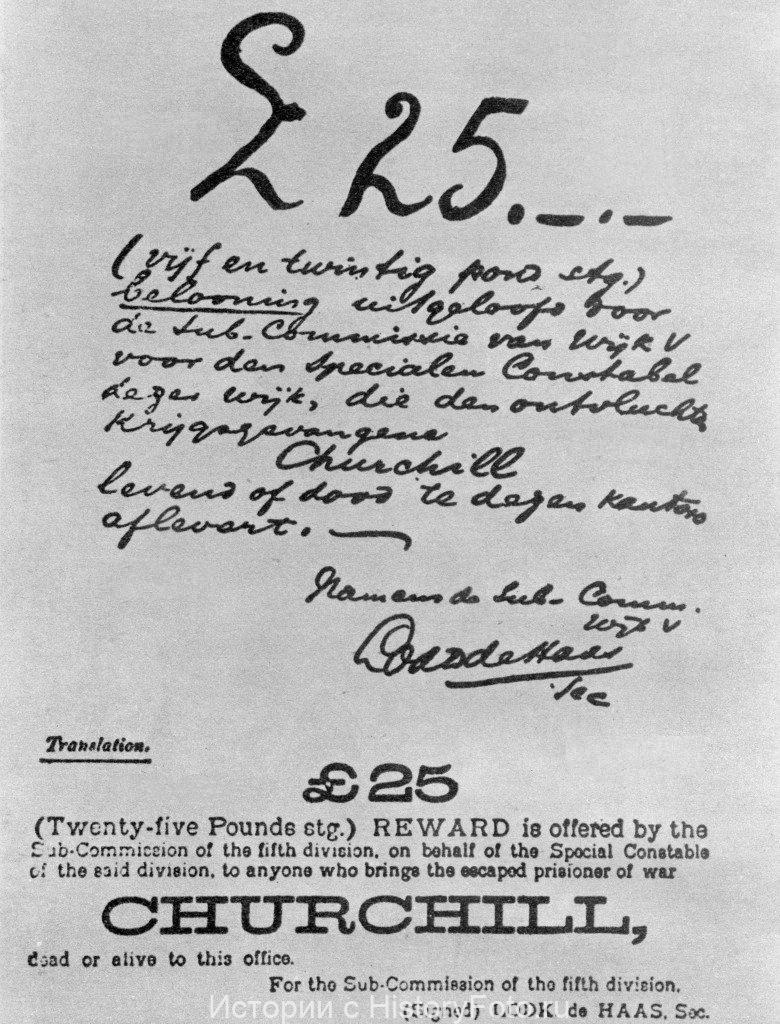 £25.-.-
(vijf en twintig pond stg.)
belooning uitgeloofd door
de Sub-Commissie van Wijk V
voor den specialen Constabel
dezer wijk, die den ontvluchte
Krijgsgevangene
Churchill
levend of dood te dezen kantore
aflevert.
Namens de Sub-Comm.
Wijk V
de Haas
Sec
Translation.
£25
(Twenty-five Pounds stg.) REWARD is offered by the
Sub-Commission of the fifth division, on behalf of the Special Constable
of the said division, to anyone who brings the escaped prisioner of war
CHURCHILL,
dead or alive to this office.
For the Sub-Commission of the fifth division.
(Signed) LODK de HAAS, Sec.
Истории с HistoryFoto.ru